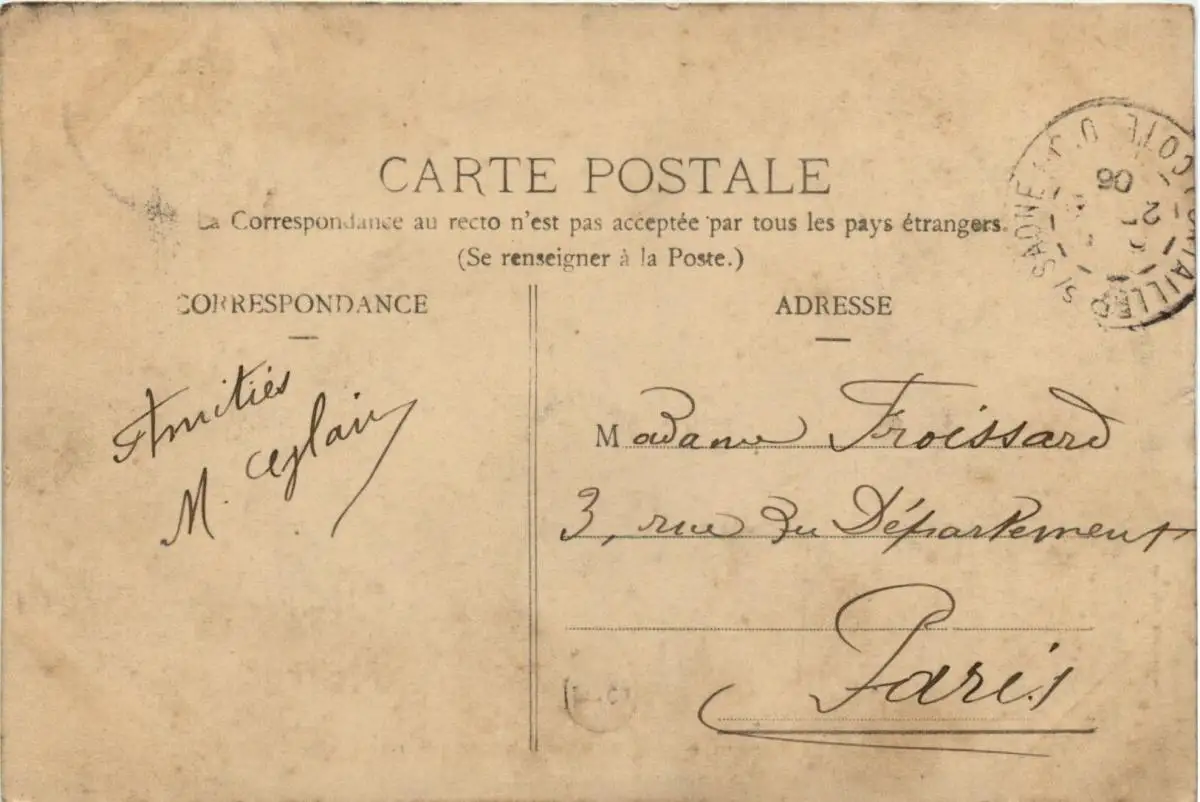 CARTE POSTALE
La Correspondance au recto n'est pas acceptée par tous les pays étrangers.
(Se renseigner à la Poste.)
CORRESPONDANCE
Amitiés
M.
ADRESSE
Madame Froissard
3, rue du Département
Paris
S/ SAONE COTE D'O
06